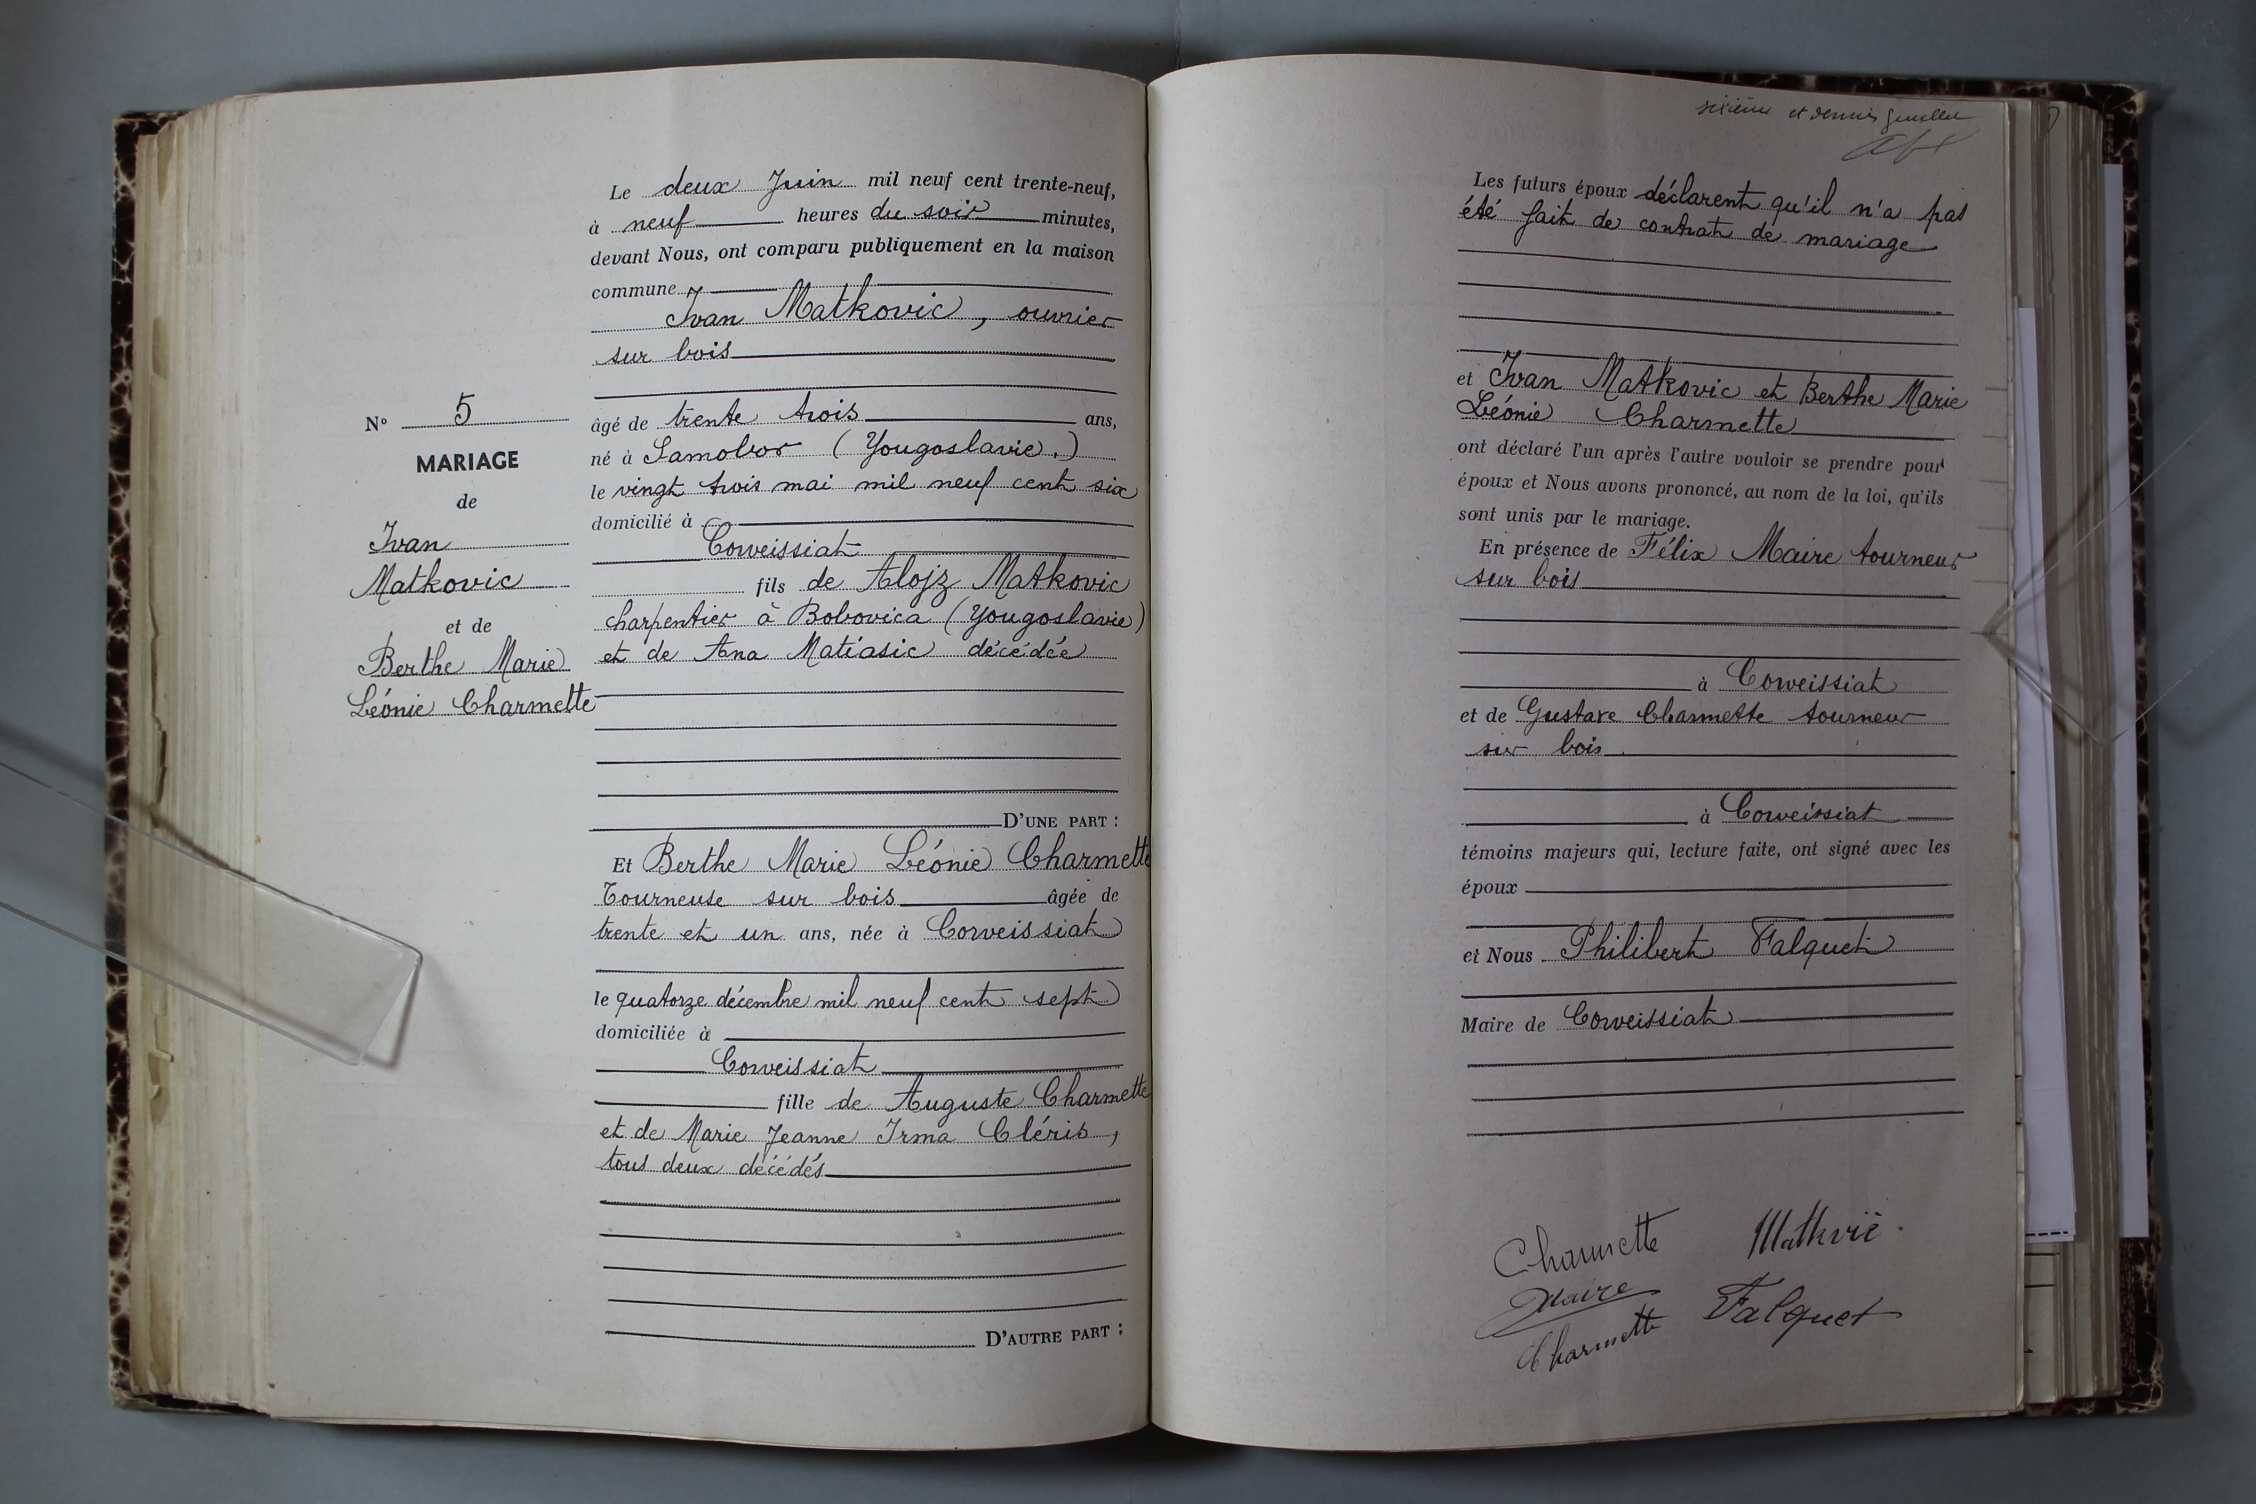 N° 5
MARIAGE
de
Ivan
Matkovic
et de
Berthe Marie
Léonie Charmette
Le deux Juin mil neuf cent trente-neuf,
à neuf heures du soir minutes,
devant Nous, ont comparu publiquement en la maison
commune
Ivan Matkovic, ouvrier
sur bois
âgé de trente trois ans,
né à Samobor (Yougoslavie.)
le vingt trois mai mil neuf cent six
domicilié à
Corveissiat
fils de Alojz Matkovic
charpentier à Bobovica (Yougoslavie)
et de Ana Matiasic décédée
D'UNE PART :
Et Berthe Marie Léonie Charmette
Tourneuse sur bois âgée de
trente et un ans, née à Corveissiat
le quatorze décembre mil neuf cent sept
domiciliée à
Corveissiat
fille de Auguste Charmette
et de Marie Jeanne Irma Cléris,
tous deux décédés
D'AUTRE PART :
sixième et dernier feuillet
Les futurs époux déclarent qu'il n'a pas
été fait de contrat de mariage
et Ivan Matkovic et Berthe Marie
Léonie Charmette
ont déclaré l'un après l'autre vouloir se prendre pour
époux et Nous avons prononcé, au nom de la loi, qu'ils
sont unis par le mariage.
En présence de Félix Maire tourneur
sur bois
à Corveissiat
et de Gustave Charmette tourneur
sur bois
à Corveissiat
témoins majeurs qui, lecture faite, ont signé avec les
époux
et Nous Philibert Falquet
Maire de Corveissiat
Charmette Matkvič
Maire
Charmette Falquet